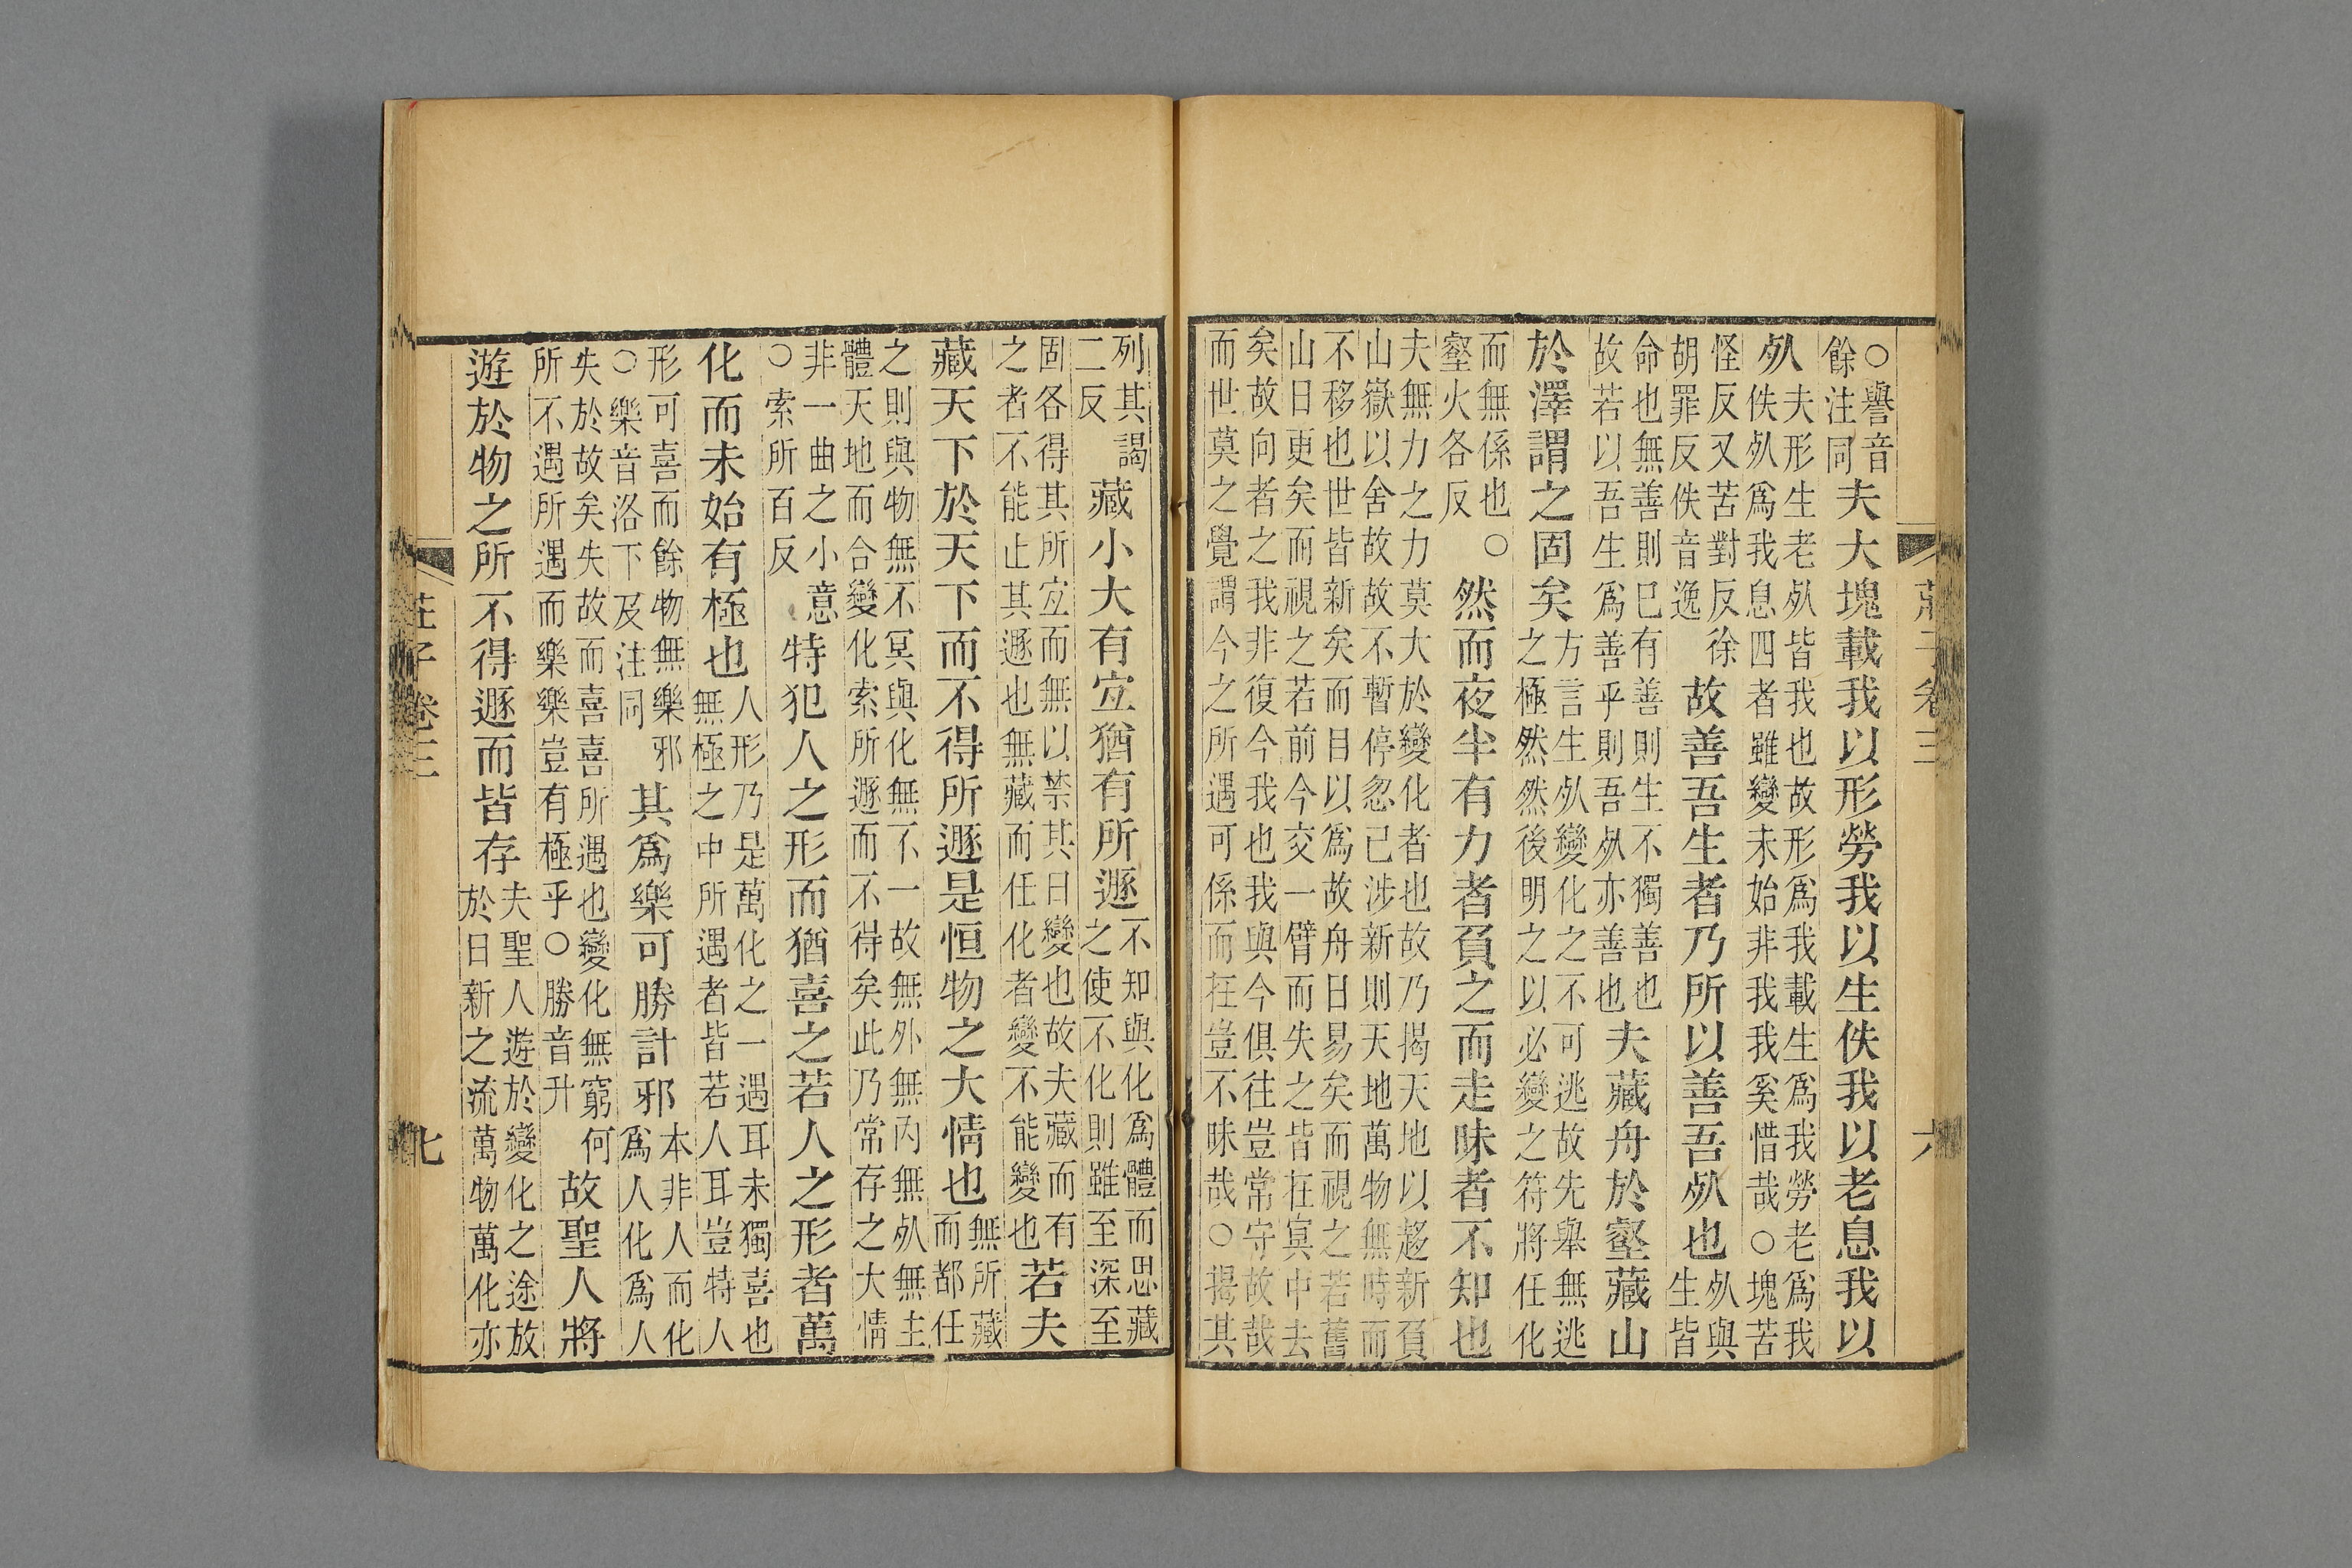 莊子卷三 六
○譽音餘注同夫大塊載我以形勞我以生佚我以老息我以
死夫形生老死皆我也故形爲我載生爲我勞老爲我佚死爲我息四者雖變未始非我我奚惜哉○塊苦
怪反又苦對反徐胡罪反佚音逸故善吾生者乃所以善吾死也死與生皆
命也無善則已有善則生不獨善也故若以吾生爲善乎則吾死亦善也夫藏舟於壑藏山
於澤謂之固矣方言生死變化之不可逃故先舉無逃之極然然後明之以必變之符將任化
而無係也○壑火各反然而夜半有力者負之而走昧者不知也
夫無力之力莫大於變化者也故乃揭天地以趍新負山嶽以舍故故不暫停忽已涉新則天地萬物無時而
不移也世皆新矣而目以爲故舟日易矣而視之若舊山日更矣而視之若前今交一臂而失之皆在冥中去
矣故向者之我非復今我也我與今俱往豈常守故哉而世莫之覺謂今之所遇可係而在豈不昧哉○揭其
列其謁二反藏小大有宜猶有所遯不知與化爲體而思藏之使不化則雖至深至
固各得其所宜而無以禁其日變也故夫藏而有之者不能止其遯也無藏而任化者變不能變也若夫
藏天下於天下而不得所遯是恒物之大情也無所藏而都任
之則與物無不冥與化無不一故無外無內無死無主體天地而合變化索所遯而不得矣此乃常存之大情
非一曲之小意○索所百反特犯人之形而猶喜之若人之形者萬
化而未始有極也人形乃是萬化之一遇耳未獨喜也無極之中所遇者皆若人耳豈特人
形可喜而餘物無樂邪○樂音洛下及注同其爲樂可勝計邪本非人而化爲人化爲人
失於故矣失故而喜喜所遇也變化無窮何所不遇所遇而樂樂豈有極乎○勝音升故聖人將
遊於物之所不得遯而皆存夫聖人遊於變化之途放於日新之流萬物萬化亦
莊子卷三 七